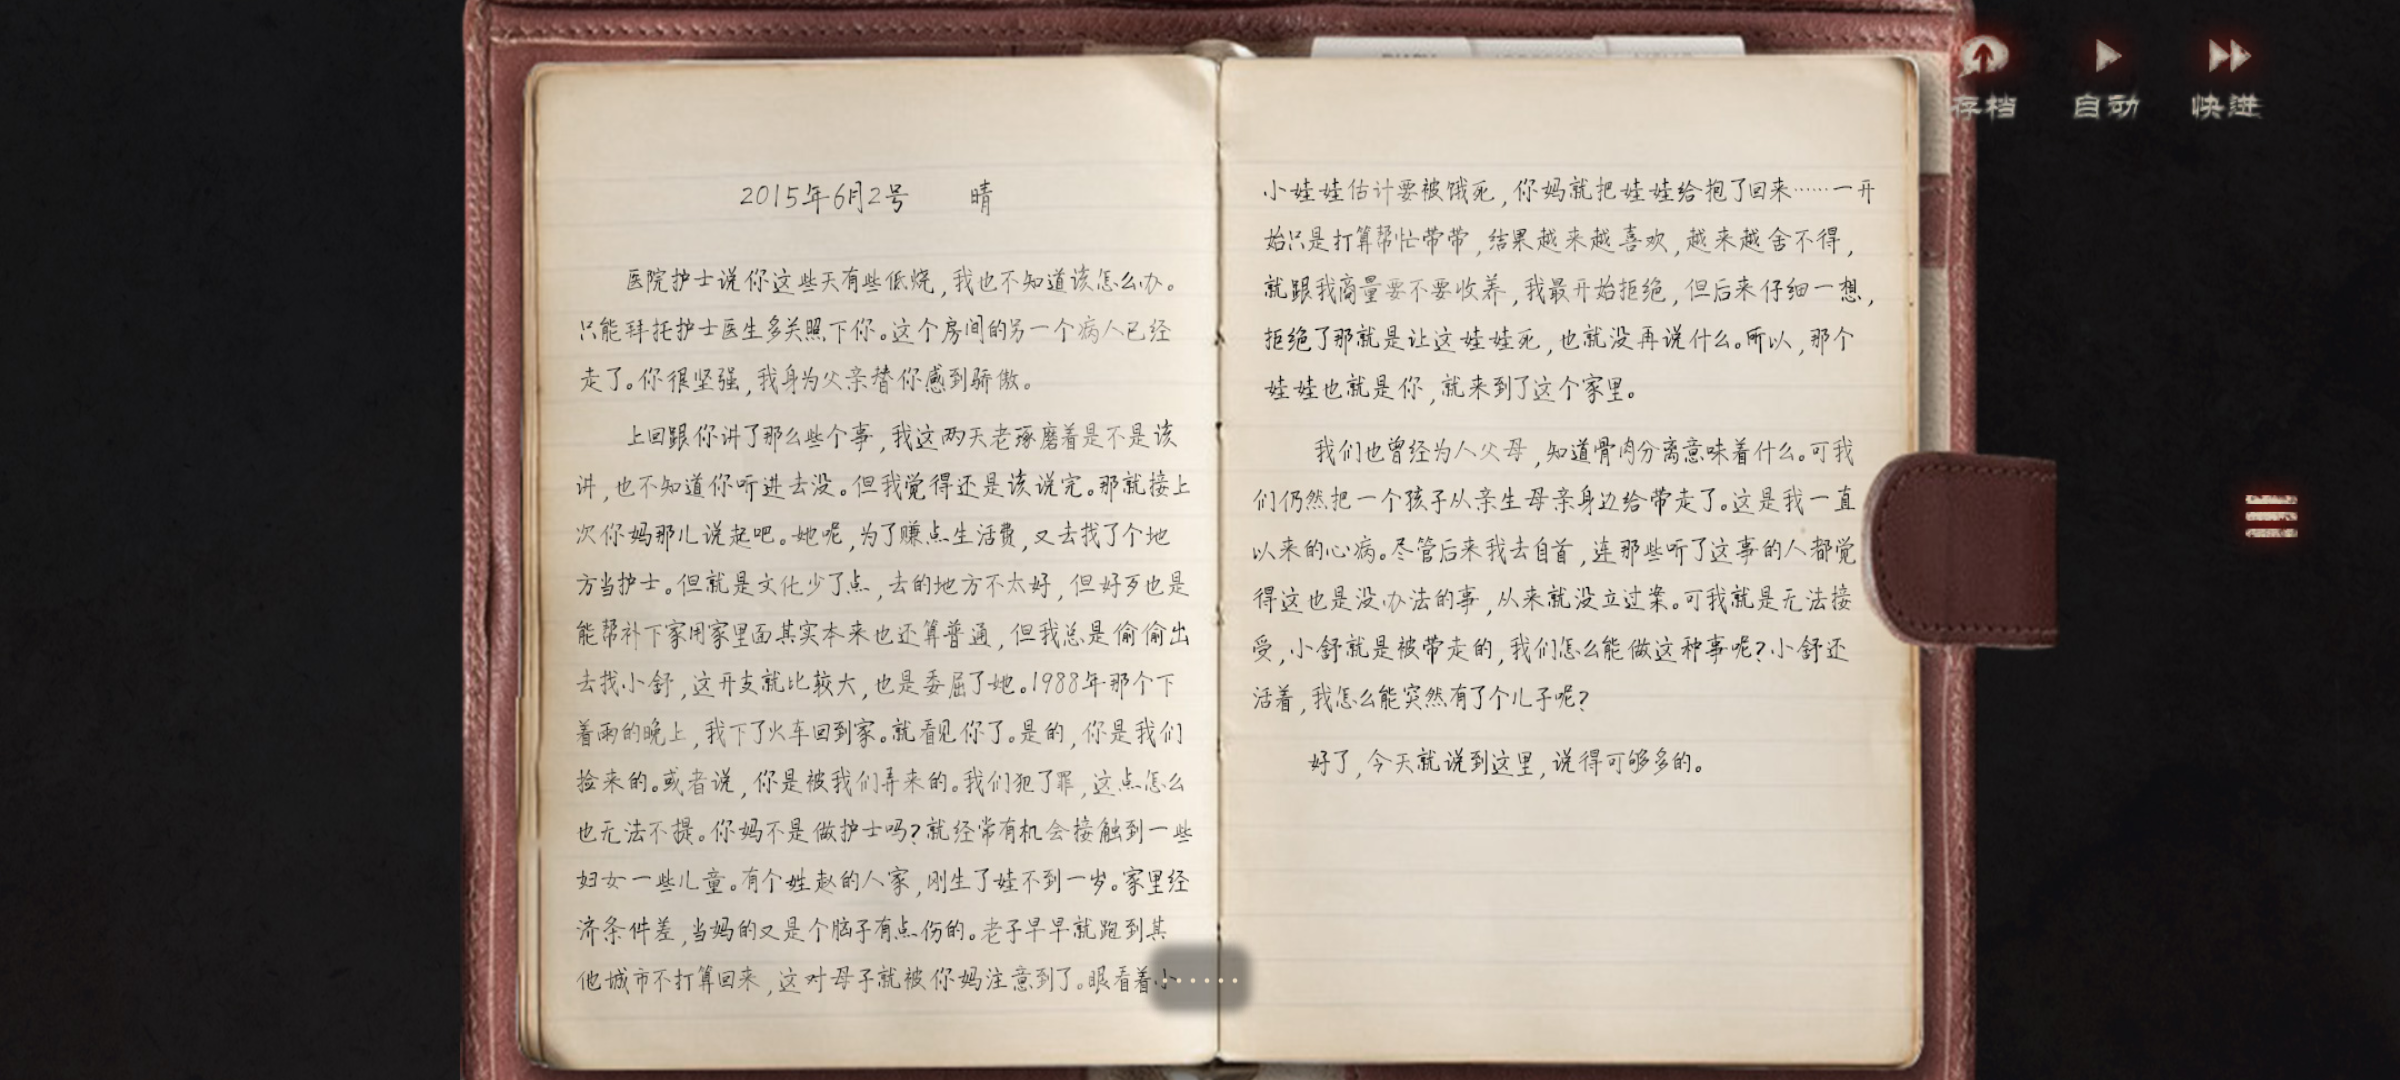 存档 自动 快进
2015年6月2号 晴
医院护士说你这些天有些低烧,我也不知道该怎么办。
只能拜托护士医生多关照下你。这个房间的另一个病人已经
走了。你很坚强,我身为父亲替你感到骄傲。
上回跟你讲了那么些个事,我这两天老琢磨着是不是该
讲,也不知道你听进去没。但我觉得还是该说完。那就接上
次你妈那儿说起吧。她呢,为了赚点生活费,又去找了个地
方当护士。但就是文化少了点,去的地方不太好,但好歹也是
能帮补下家用家里面其实本来也还算普通,但我总是偷偷出
去找小舒,这开支就比较大,也是委屈了她。1988年那个下
着雨的晚上,我下了火车回到家。就看见你了。是的,你是我们
捡来的。或者说,你是被我们弄来的。我们犯了罪,这点怎么
也无法不提。你妈不是做护士吗?就经常有机会接触到一些
妇女一些儿童。有个姓赵的人家,刚生了娃不到一岁。家里经
济条件差,当妈的又是个脑子有点伤的。老子早早就跑到其
他城市不打算回来,这对母子就被你妈注意到了。眼看着小
······
小娃娃估计要被饿死,你妈就把娃娃给抱了回来······一开
始只是打算帮忙带带,结果越来越喜欢,越来越舍不得,
就跟我商量要不要收养,我最开始拒绝,但后来仔细一想,
拒绝了那就是让这娃娃死,也就没再说什么。所以,那个
娃娃也就是你,就来到了这个家里。
我们也曾经为人父母,知道骨肉分离意味着什么。可我
们仍然把一个孩子从亲生母亲身边给带走了。这是我一直
以来的心病。尽管后来我去自首,连那些听了这事的人都觉
得这也是没办法的事,从来就没立过案。可我就是无法接
受,小舒就是被带走的,我们怎么能做这种事呢?小舒还
活着,我怎么能突然有了个儿子呢?
好了,今天就说到这里,说得可够多的。